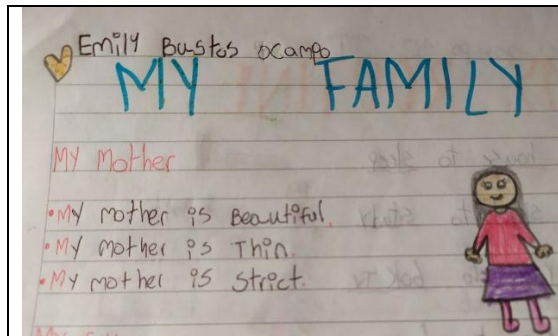 Emily Bustos ocampo
MY FAMILY
MY Mother
•My mother is Beautiful.
•My mother is Thin.
•My mother is Strict.